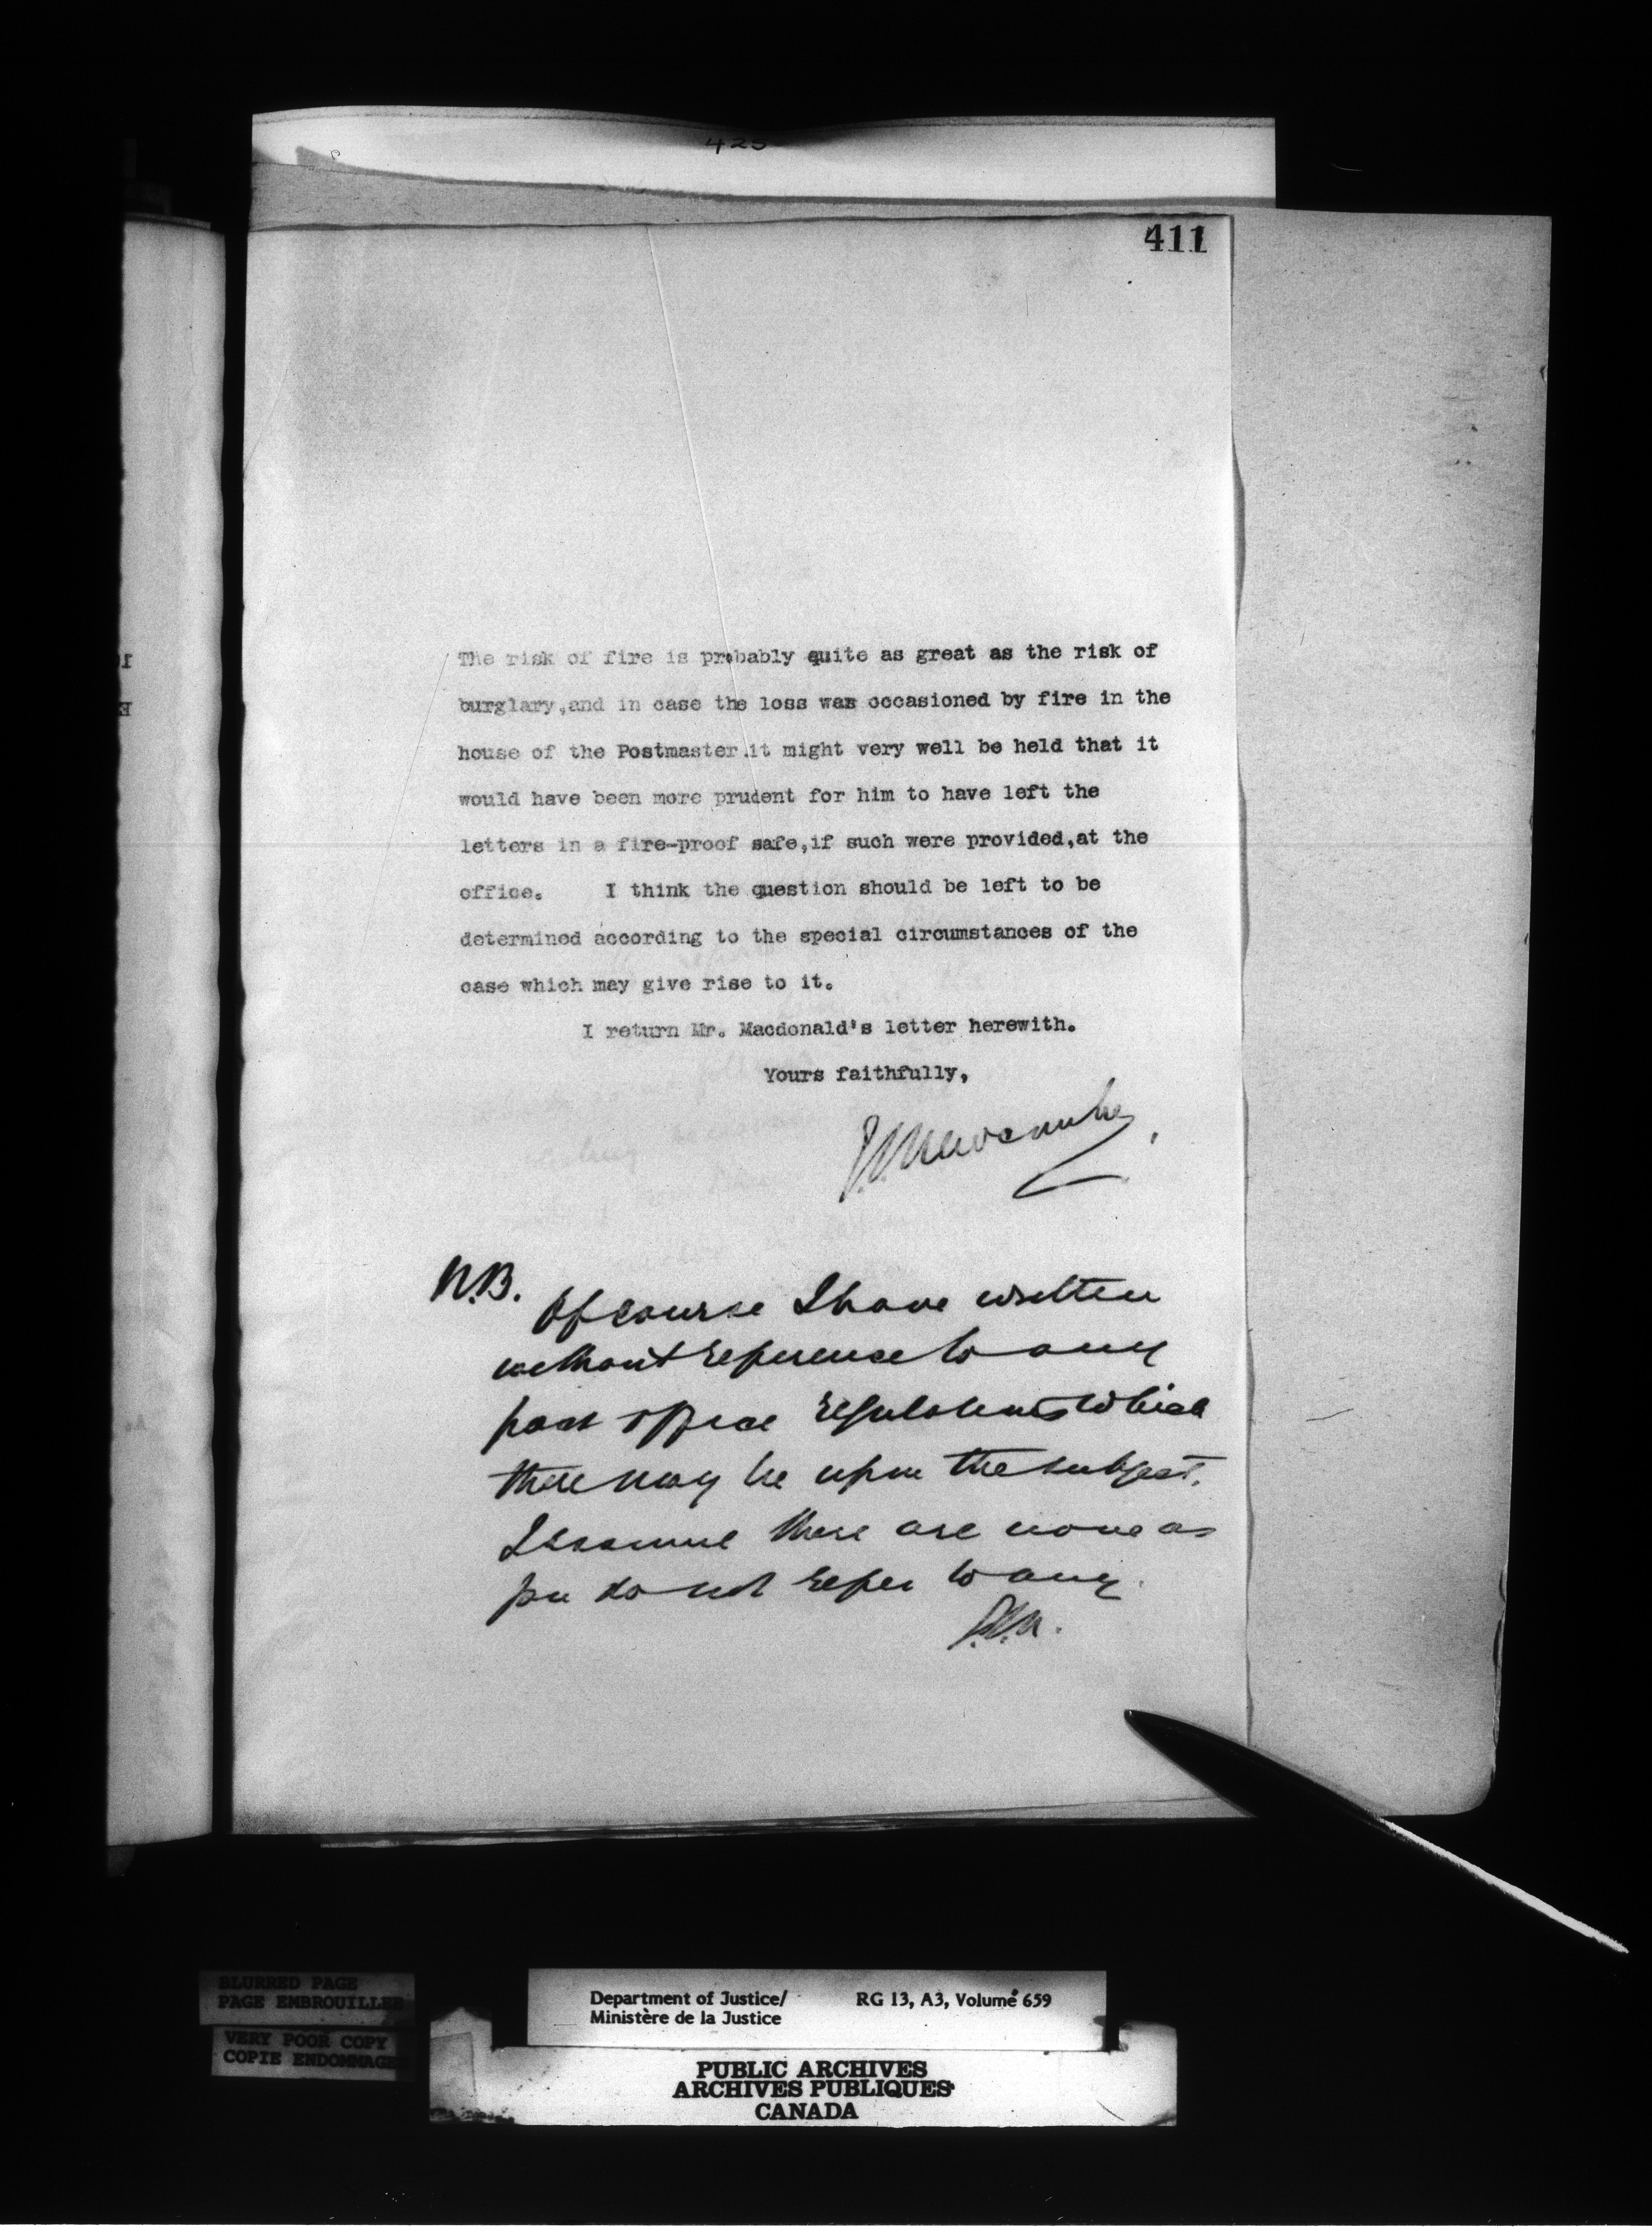 425
411
The risk of fire is probably quite as great as the risk of
burglary,and in case the loss was occasioned by fire in the
house of the Postmaster it might very well be held that it
would have been more prudent for him to have left the
letters in a fire-proof safe,if such were provided,at the
office. I think the question should be left to be
determined according to the special circumstances of the
case which may give rise to it.
I return Mr. Macdonald's letter herewith.
Yours faithfully,
N.B.
Of course I have written
without reference to any
post office regulations which
there may be upon the subject.
I assume there are none as
you do not refer to any.
BLURRED PAGE
PAGE EMBROUILLEE
VERY POOR COPY
COPIE ENDOMMAGE
Department of Justice/ RG 13, A3, Volume 659
Ministère de la Justice
PUBLIC ARCHIVES
ARCHIVES PUBLIQUES
CANADA